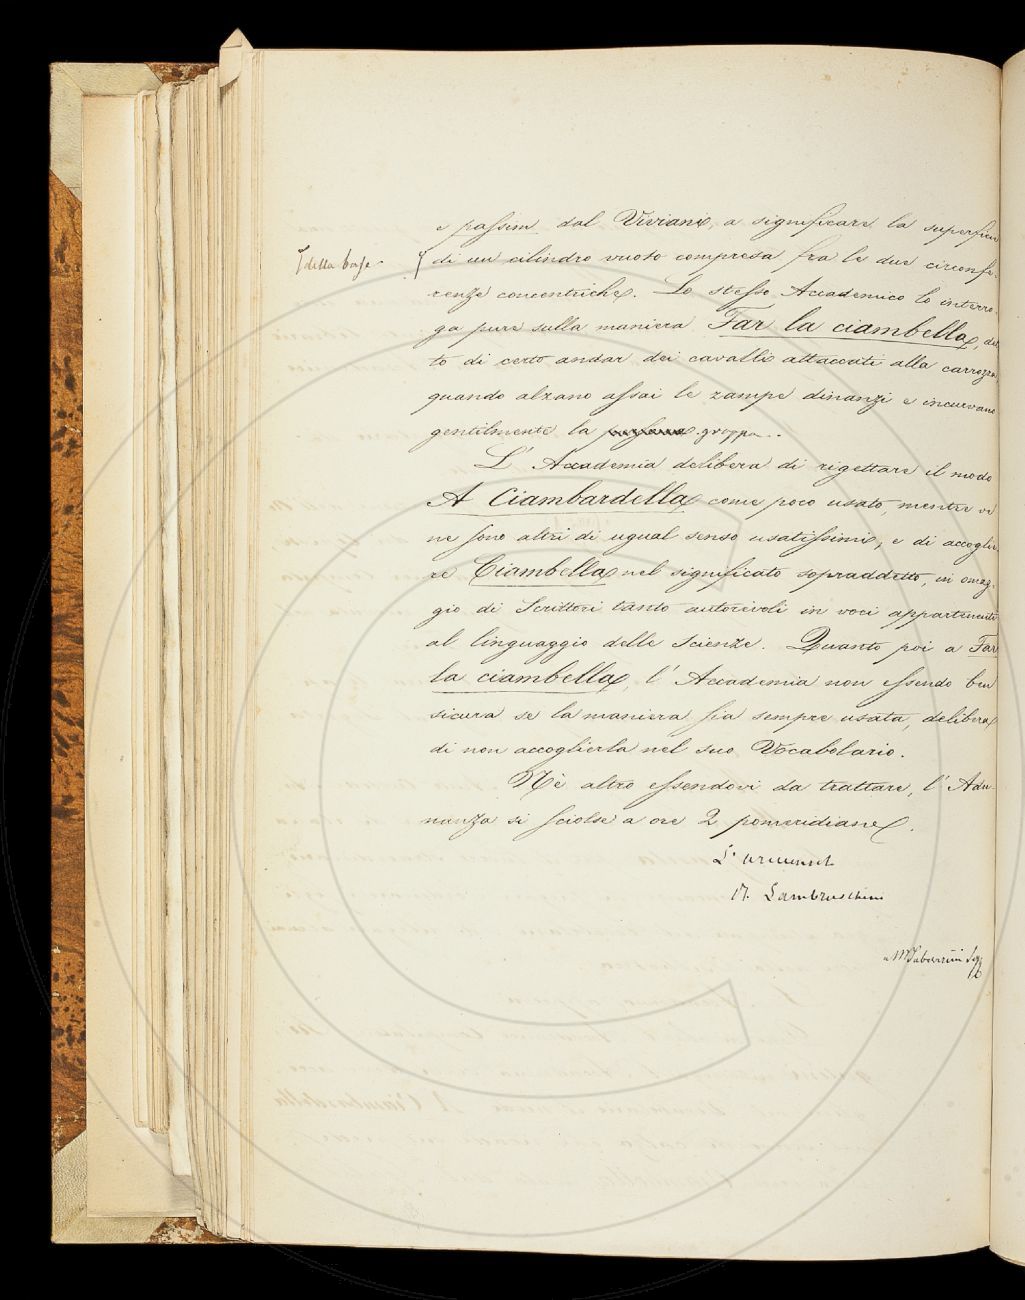 e passim dal Viviani, a significare la superficie
∫ della base
∫ di un cilindro vuoto compresa fra le due circonfe-
renze concentriche. Lo stesso Accademico lo interro-
ga pure sulla maniera Far la ciambella, det-
to di certo andar dei cavalli attaccati alla carrozza,
quando alzano assai le zampe dinanzi e incurvano
gentilmente la groppa.
L' Accademia delibera di rigettare il modo
A Ciambardella come poco usato, mentre ve
ne sono altri di ugual senso usatissimi, e di accoglie-
re Ciambella nel significato sopraddetto, in omag-
gio di Scrittori tanto autorevoli in voci appartenenti
al linguaggio delle Scienze. Quanto poi a Far
la ciambella, l' Accademia non essendo ben
sicura se la maniera sia sempre usata, delibera
di non accoglierla nel suo Vocabolario.
Nè altro essendovi da trattare, l' Adu-
nanza si sciolse a ore 2 pomeridiane.
L'
R. Lambruschini
M Tabarrini Seg